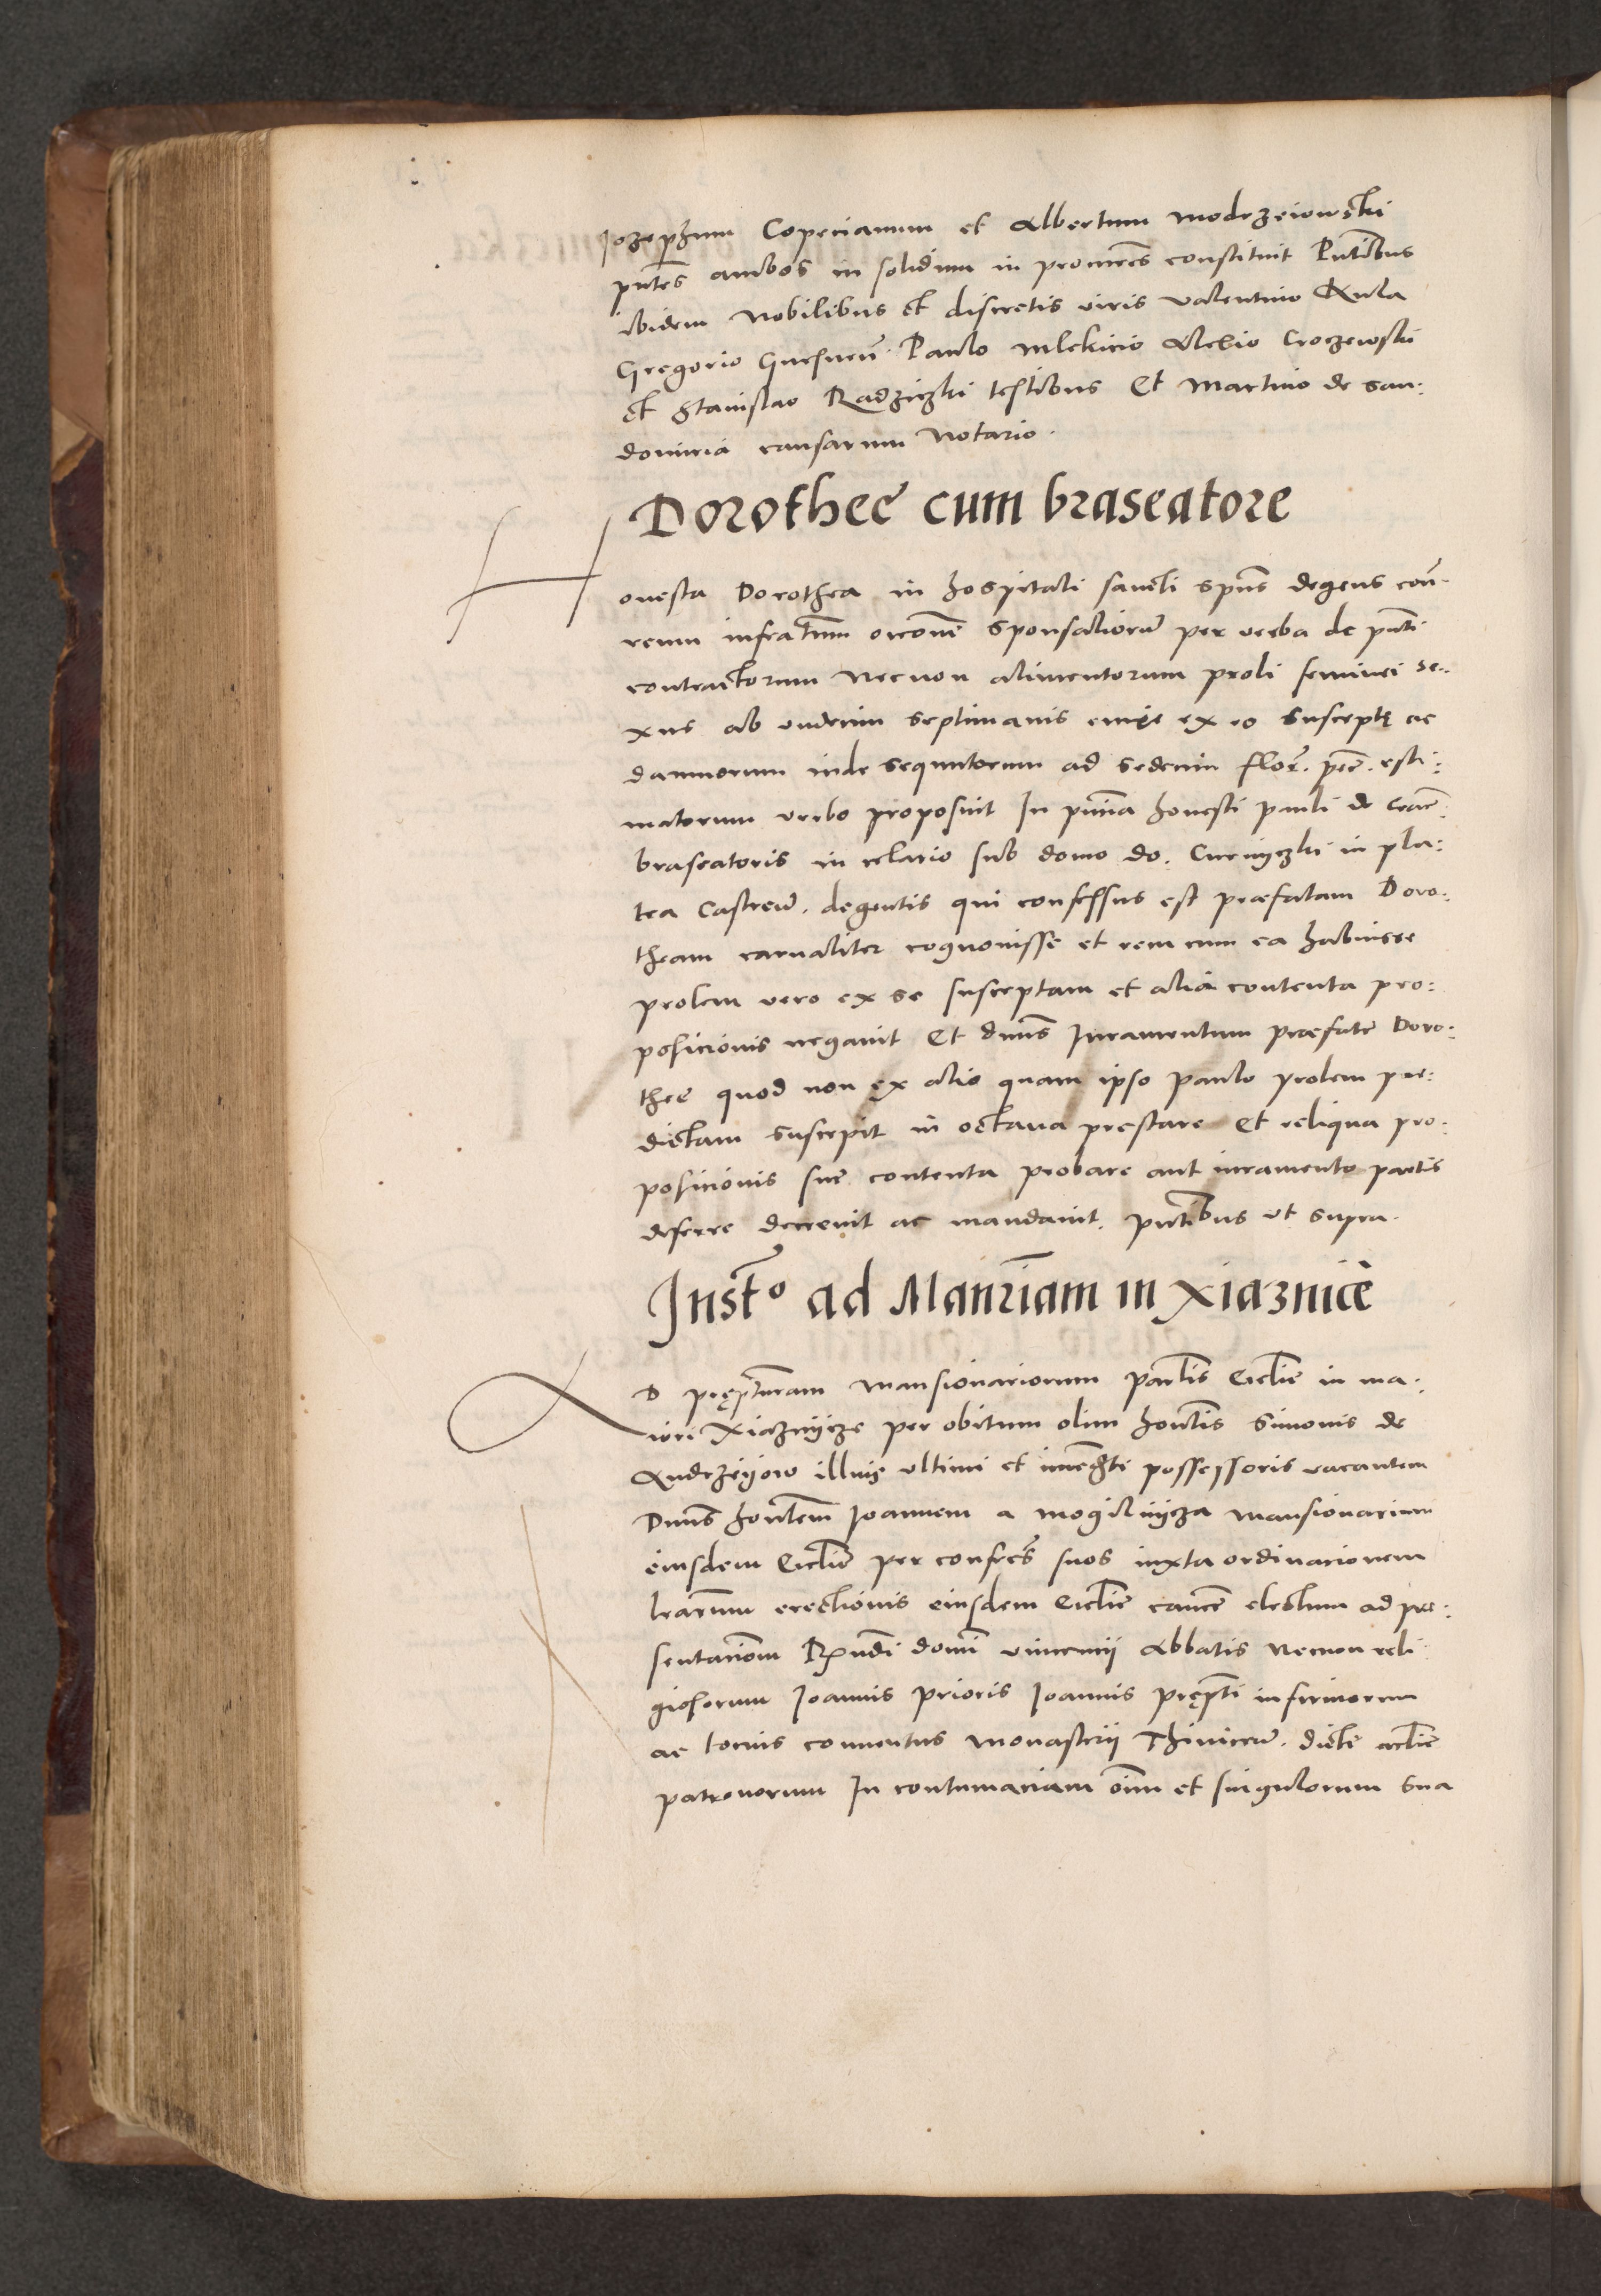 Jozephum Copecianum et Albertum Modrzeiowski
pntes ambos in solidum in procures constituit Pntibus
ibidem Nobilibus et discretis viris Valentino Kula
Gregorio Gnesnen. Paulo Mlekicio Alexio Croczewski
et Stanislao Radziczki testibus Et Martino de San:
domiria causarum Notario.
Dorothee cum braseatore
Honesta Dorothea in hospitali sancti spus degens coram
reum infrascriptum occone sponsaliorum per verba de pnti
contractorum Necnon alimentorum proli feminei se:
xus ab undecim septimanis ex eo suscepte ac
damnorum inde sequutorum ad sedecim flor. pec. esti:
matorum verbo proposuit In pntia honesti Pauli de Crac.
braseatoris in celario sub domo do. Curniczki in pla:
tea Castren. degentis qui confessus est prefatam Doro:
theam carnaliter cognovisse et rem cum ea habuisse
prolem vero ex se susceptam et alia contenta pro:
posicionis negavit Et dnus Iuramentum prefate Doro:
thee quod non ex alio quam ipso Paulo prolem pre:
dictam suscepit in octava prestare Et reliqua pro:
posicionis sue contenta probare aut iuramento partis
deferre decrevit ac mandavit. pntibus ut supra.
Instto ad Manriam in Xiaznice
AD preptturam mansionariorum parlis Ecclie in ma:
iori Xiaznycze per obitum olim honlis Simonis de
Andrzeyow illius ultimi et immedti possessoris vacantem
Dnus honlem Joannem a Mogilnycza mansionarium
eiusdem Ecclie per confres suos iuxta ordinacionem
lrarum erectionis eiusdem Ecclie cance electum ad pre:
sentacionem Rndi domi Vincencii Abbatis Necnon reli
giosorum Joannis prioris Joannis prepti infirmorum
ac tocius conventus monasterii Thinicen. dicte ecclie
patronorum In contumaciam oim et singulorum sua